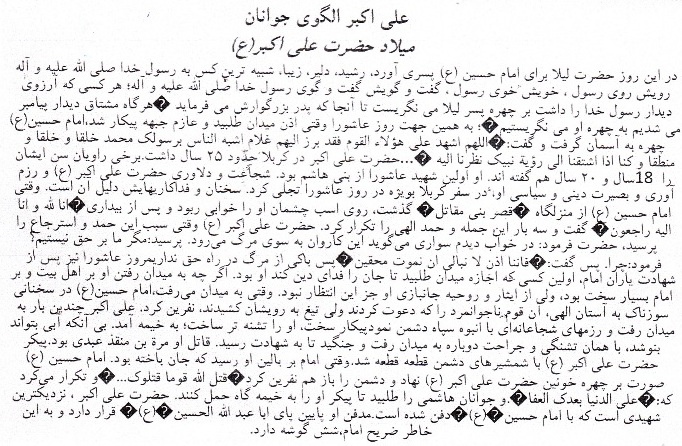 علی اکبر الگوی جوانان
میلاد حضرت علی اکبر(ع)
در این روز حضرت لیلا برای امام حسین (ع) پسری آورد، رشید، دلیر، زیبا، شبیه ترین کس به رسول خدا صلی الله علیه و آله
رویش روی رسول ، خویش خوی رسول ، گفت و گویش گفت و گوی رسول خدا صلی الله علیه و آله؛ هر کسی که آرزوی
دیدار رسول خدا را داشت بر چهره پسر لیلا می نگریست تا آنجا که پدر بزرگوارش می فرماید �هرگاه مشتاق دیدار پیامبر
می شدیم به چهره او می نگریستیم�؛ به همین جهت روز عاشورا وقتی اذن میدان طلبید و عازم جبهه پیکار شد،امام حسین(ع)
چهره به آسمان گرفت و گفت:�اللهم اشهد علی هؤلاء القوم فقد برز الیهم غلام اشبه الناس برسولک محمد خلقا و خلقا و
منطقا و کنا اذا اشتقنا الی رؤیة نبیک نظرنا الیه �...حضرت علی اکبر در کربلا حدود ۲۵ سال داشت.برخی راویان سن ایشان
را 18سال و ۲۰ سال هم گفته اند. او اولین شهید عاشورا از بنی هاشم بود. شجاعت و دلاوری حضرت علی اکبر (ع) و رزم
آوری و بصیرت دینی و سیاسی او، در سفر کربلا بویژه در روز عاشورا تجلی کرد. سخنان و فداکاریهایش دلیل آن است. وقتی
امام حسین (ع) از منزلگاه �قصر بنی مقاتل� گذشت، روی اسب چشمان او را خوابی ربود و پس از بیداری�انا لله و انا
الیه راجعون� گفت و سه بار این جمله و حمد الهی را تکرار کرد. حضرت علی اکبر (ع) وقتی سبب این حمد و استرجاع را
پرسید، حضرت فرمود: در خواب دیدم سواری می‌گوید این کاروان به سوی مرگ می‌رود. پرسید:مگر ما بر حق نیستیم؟
فرمود:چرا. پس گفت:�فاننا اذن لا نبالی ان نموت محقین�پس باکی از مرگ در راه حق نداریم.روز عاشورا نیز پس از
شهادت یاران امام، اولین کسی که اجازه میدان طلبید تا جان را فدای دین کند او بود. اگر چه به میدان رفتن او بر اهل بیت و بر
امام بسیار سخت بود، ولی از ایثار و روحیه جانبازی او جز این انتظار نبود. وقتی به میدان می‌رفت،امام حسین(ع) در سخنانی
سوزناک به آستان الهی، آن قوم ناجوانمرد را که دعوت کردند ولی تیغ به رویشان کشیدند، نفرین کرد. علی اکبر چندین بار به
میدان رفت و رزمهای شجاعانه‌ای با انبوه سپاه دشمن نمود.پیکار سخت، او را تشنه تر ساخت؛ به خیمه آمد. بی آنکه آبی بتواند
بنوشد، با همان تشنگی و جراحت دوباره به میدان رفت و جنگید تا به شهادت رسید. قاتل او مرة بن منقذ عبدی بود.پیکر
حضرت علی اکبر (ع) با شمشیرهای دشمن قطعه قطعه شد.وقتی امام بر بالین او رسید که جان باخته بود. امام حسین (ع)
صورت بر چهره خونین حضرت علی اکبر (ع) نهاد و دشمن را باز هم نفرین کرد�قتل الله قوما قتلوک...�و تکرار می‌کرد
که:�علی الدنیا بعدک العفا�.و جوانان هاشمی را طلبید تا پیکر او را به خیمه گاه حمل کنند. حضرت علی اکبر ، نزدیکترین
شهیدی است که با امام حسین�(ع)�دفن شده است.مدفن او پایین پای ابا عبد الله الحسین�(ع)� قرار دارد و به این
خاطر ضریح امام،شش گوشه دارد.